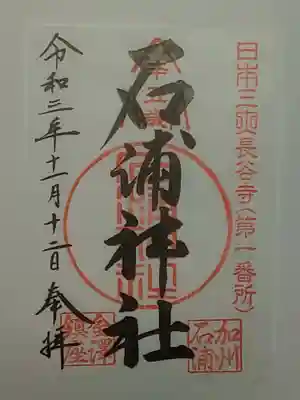 日本三爽(長谷寺(第一番所)
石浦神社
令和三年十一月十二日 奉拝
加州
石浦
金澤
鎮座